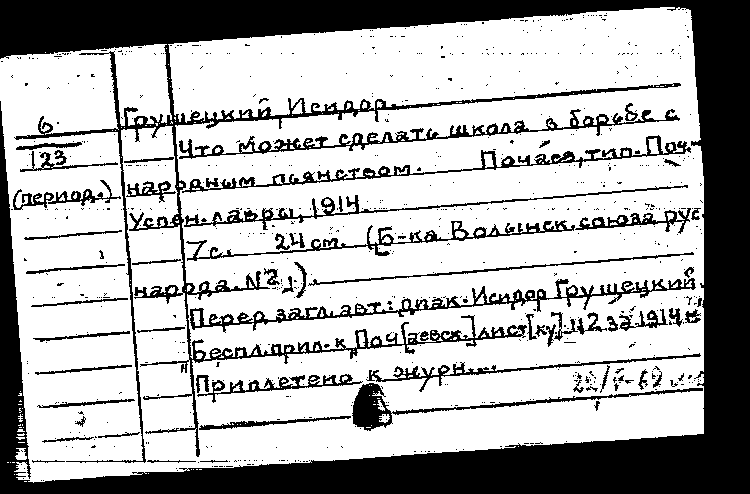 6
123
(период.)
Грушецкий, Исидор.
Что может сделать школа в борьбе с
народным пьянством. Почаев, тип. Поч.-
Успен. лавры, 1914.
7 с. 24 см. (Б-ка Волынск. союза рус.
народа. №2,).
Перед загл. авт.: диак. Исидор Грушецкий.
Беспл. прил. к "Поч[аевск.] лист[ку]" №2 за 1914 г.
"Приплетено к журн....